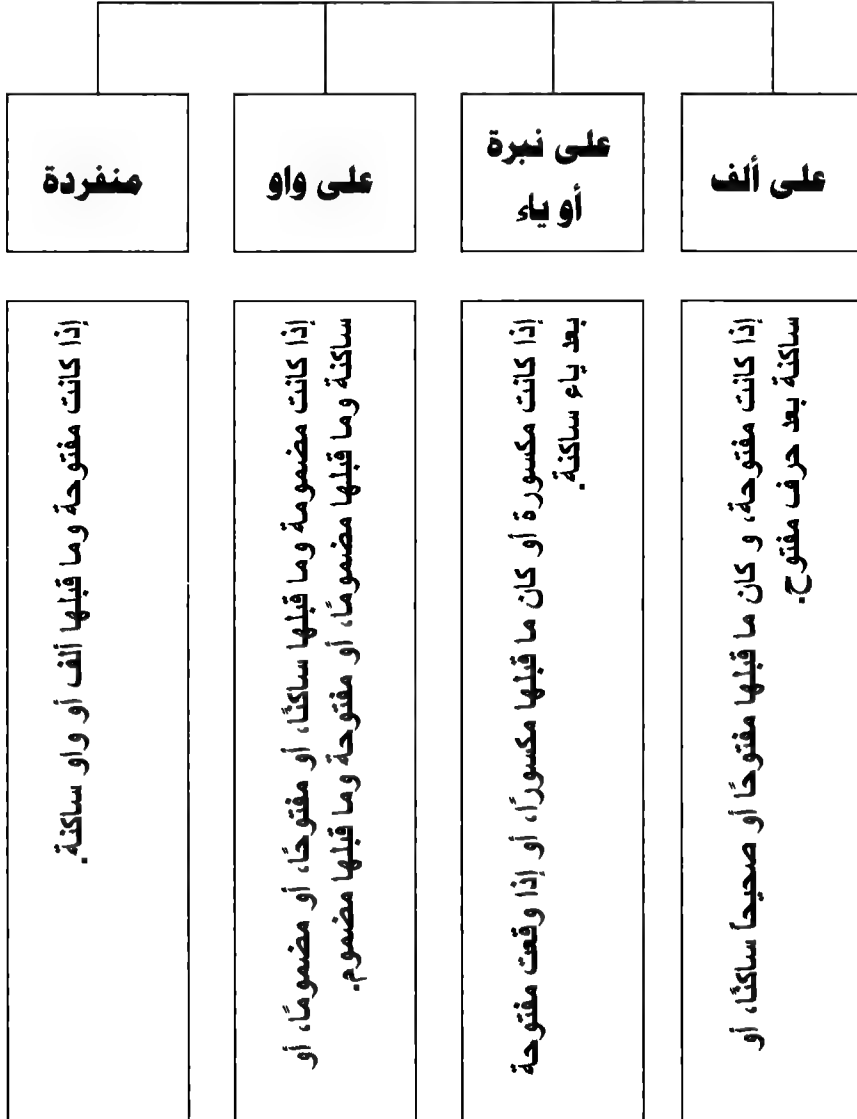 على ألف
على نبرة
أو ياء
على واو
منفردة
إذا كانت مفتوحة، و كان ما قبلها مفتوحًا أو صحيحاً ساكنًا، أو
ساكنة بعد حرف مفتوح.
إذا كانت مكسورة أو كان ما قبلها مكسورًا، أو إذا وقعت مفتوحة
بعد ياء ساكنة.
إذا كانت مضمومة وما قبلها ساكنًا، أو مفتوحًا، أو مضمومًا، أو
ساكنة وما قبلها مضمومًا، أو مفتوحة وما قبلها مضموم.
إذا كانت مفتوحة وما قبلها ألف أو واو ساكنة.